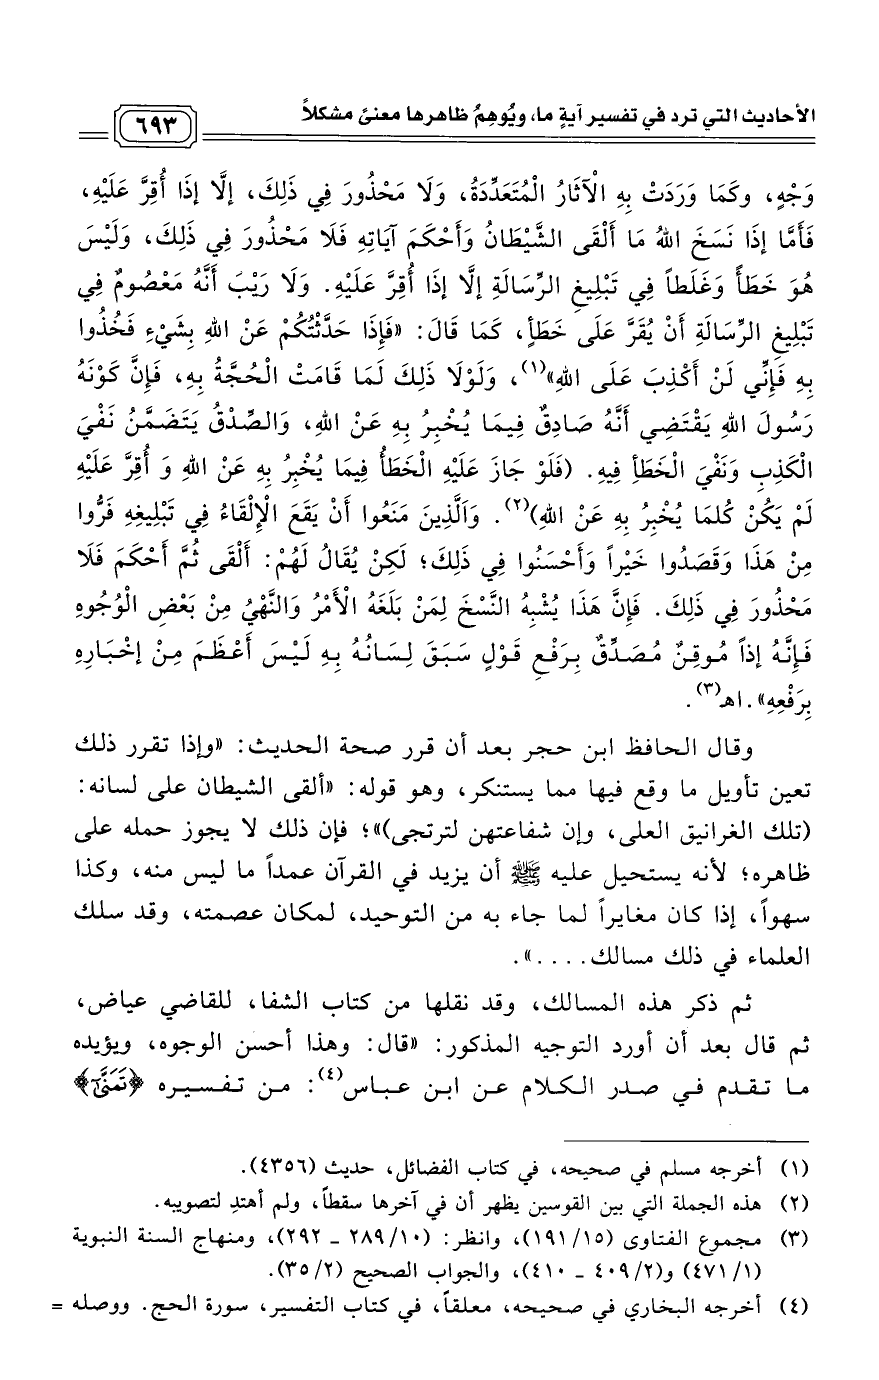 الأحاديث التي ترد في تفسير آيةٍ ما، ويُوهِمُ ظاهرها معنىً مشكلاً
٦٩٣
وَجْهٍ، وكَمَا وَرَدَتْ بِهِ الْآثَارُ الْمُتَعَدِّدَةُ، وَلَا مَحْذُورَ فِي ذَلِكَ، إلَّا إذَا أُقِرَّ عَلَيْهِ،
فَأَمَّا إذَا نَسَخَ اللهُ مَا أَلْقَى الشَّيْطَانُ وَأَحْكَمَ آيَاتِهِ فَلَا مَحْذُورَ فِي ذَلِكَ، وَلَيْسَ
هُوَ خَطَأً وَغَلَطاً فِي تَبْلِيغِ الرِّسَالَةِ إلَّا إذَا أُقِرَّ عَلَيْهِ. وَلَا رَيْبَ أَنَّهُ مَعْصُومٌ فِي
تَبْلِيغِ الرِّسَالَةِ أَنْ يُقَرَّ عَلَى خَطَأٍ، كَمَا قَالَ: «فَإِذَا حَدَّثْتُكُمْ عَنْ اللهِ بِشَيْءٍ فَخُذُوا
بِهِ فَإِنِّي لَنْ أَكْذِبَ عَلَى اللهِ»(١)، وَلَوْلَا ذَلِكَ لَمَا قَامَتْ الْحُجَّةُ بِهِ، فَإِنَّ كَوْنَهُ
رَسُولَ اللهِ يَقْتَضِي أَنَّهُ صَادِقٌ فِيمَا يُخْبِرُ بِهِ عَنْ اللهِ، وَالصِّدْقُ يَتَضَمَّنُ نَفْيَ
الْكَذِبِ وَنَفْيَ الْخَطَأِ فِيهِ. (فَلَوْ جَازَ عَلَيْهِ الْخَطَأُ فِيمَا يُخْبِرُ بِهِ عَنْ اللهِ وَ أُقِرَّ عَلَيْهِ
لَمْ يَكُنْ كُلمَا يُخْبِرُ بِهِ عَنْ اللهِ)(٢). وَاَلَّذِينَ مَنَعُوا أَنْ يَقَعَ الْإِلْقَاءُ فِي تَبْلِيغِهِ فَرُّوا
مِنْ هَذَا وَقَصَدُوا خَيْراً وَأَحْسَنُوا فِي ذَلِكَ؛ لَكِنْ يُقَالُ لَهُمْ: أَلْقَى ثُمَّ أَحْكَمَ فَلَا
مَحْذُورَ فِي ذَلِكَ. فَإِنَّ هَذَا يُشْبِهُ النَّسْخَ لِمَنْ بَلَغَهُ الْأَمْرُ وَالنَّهْيُ مِنْ بَعْضِ الْوُجُوهِ
فَإِنَّهُ إذاً مُوقِنٌ مُصَدِّقٌ بِرَفْعِ قَوْلٍ سَبَقَ لِسَانُهُ بِهِ لَيْسَ أَعْظَمَ مِنْ إخْبَارِهِ
بِرَفْعِهِ».اهـ(٣).
وقال الحافظ ابن حجر بعد أن قرر صحة الحديث: «وإذا تقرر ذلك
تعين تأويل ما وقع فيها مما يستنكر، وهو قوله: «ألقى الشيطان على لسانه:
(تلك الغرانيق العلى، وإن شفاعتهن لترتجى)»؛ فإن ذلك لا يجوز حمله على
ظاهره؛ لأنه يستحيل عليه ﷺ أن يزيد في القرآن عمداً ما ليس منه، وكذا
سهواً، إذا كان مغايراً لما جاء به من التوحيد، لمكان عصمته، وقد سلك
العلماء في ذلك مسالك....».
ثم ذكر هذه المسالك، وقد نقلها من كتاب الشفا، للقاضي عياض،
ثم قال بعد أن أورد التوجيه المذكور: «قال: وهذا أحسن الوجوه، ويؤيده
ما تقدم في صدر الكلام عن ابن عباس(٤): من تفسيره ﴿تَمَنَّىٰٓ﴾
(١) أخرجه مسلم في صحيحه، في كتاب الفضائل، حديث (٤٣٥٦).
(٢) هذه الجملة التي بين القوسين يظهر أن في آخرها سقطاً، ولم أهتدِ لتصويبه.
(٣) مجموع الفتاوى (١٩١/١٥)، وانظر: (٢٨٩/١٠ ـ ٢٩٢)، ومنهاج السنة النبوية
(٤٧١/١) و(٤٠٩/٢ ـ ٤١٠)، والجواب الصحيح (٣٥/٢).
(٤) أخرجه البخاري في صحيحه، معلقاً، في كتاب التفسير، سورة الحج. ووصله =